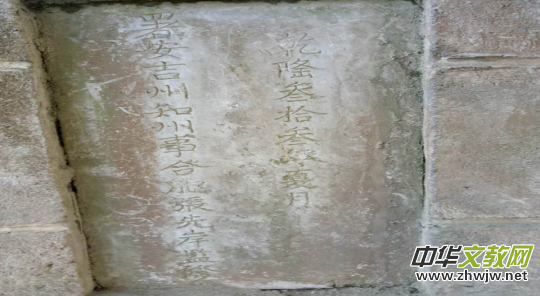 乾隆叁拾叁年夏月
署安吉州知州事合肥張先岸
中华文教网
www.zhwjw.net